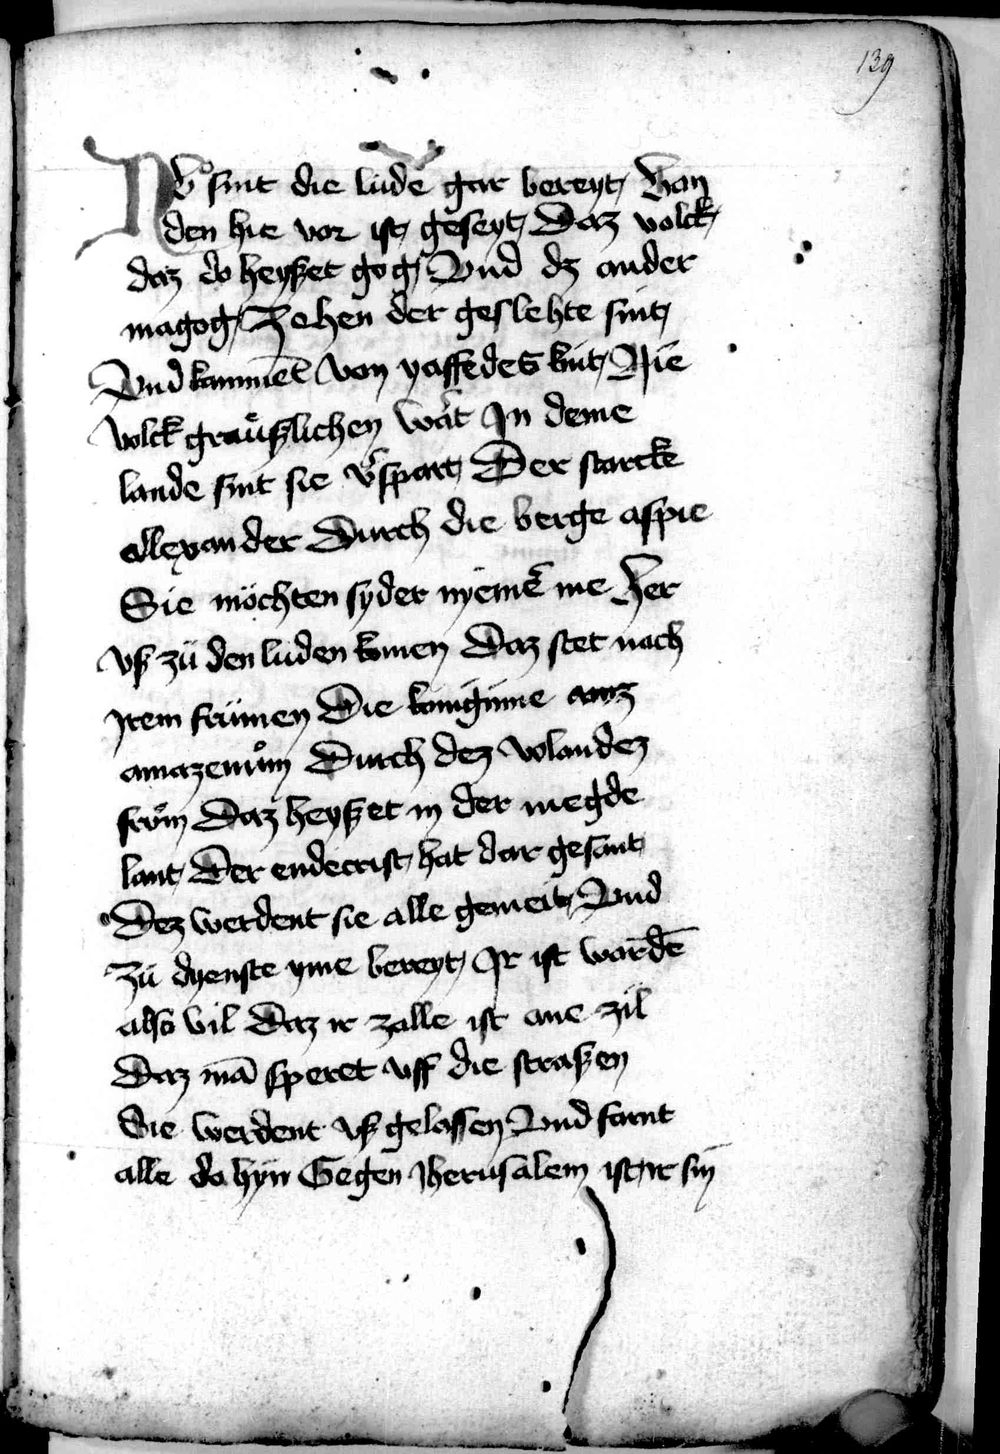 139
Nů sint die lüde gar bereyt Von
den hie vor ist geseyt Daz volck
daz do heyßet gog Vnd dz ander
magog Zehen der geslehte sint
Vnd kammēt von yaffedes kint Nie
volck graüßlichen wart In deme
lande sint sie v̾spart Der starcke
allexander Durch die berge aspie
Sie möchten syder nyem̄er me Her
vß zü den lüden komen Daz stet nach
Irem frümen Die koniginne
amazenům Durch dez volandez
frům Daz heyßet in der megde
lant Der endecrist hat dar gesant
Dez werdent sie alle gemeit Vnd
Zü dyenste yme bereyt Ir ist wordē
also vil Daz ir zalle ist ane zil
Daz mā speret vff die straßen
Sie werdent vß gelassen Vnd farnt
alle do hyn Gegen Jherusalem ist ir sin